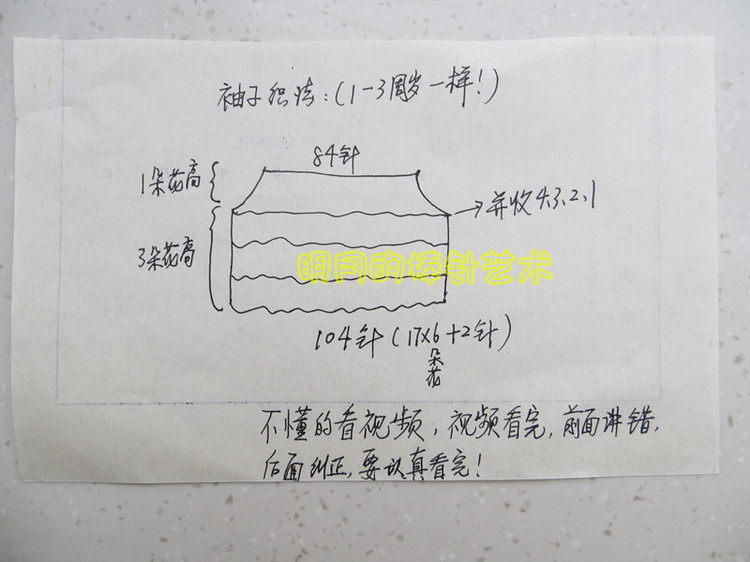 袖子织法:(1-3周岁一样!)
84针
1朵花高
→并收4.3.2.1
3朵花高
明月的棒针艺术
104针(17×6+2针)
朵花
不懂的看视频,视频看完,前面讲错,
后面纠正,要认真看完!